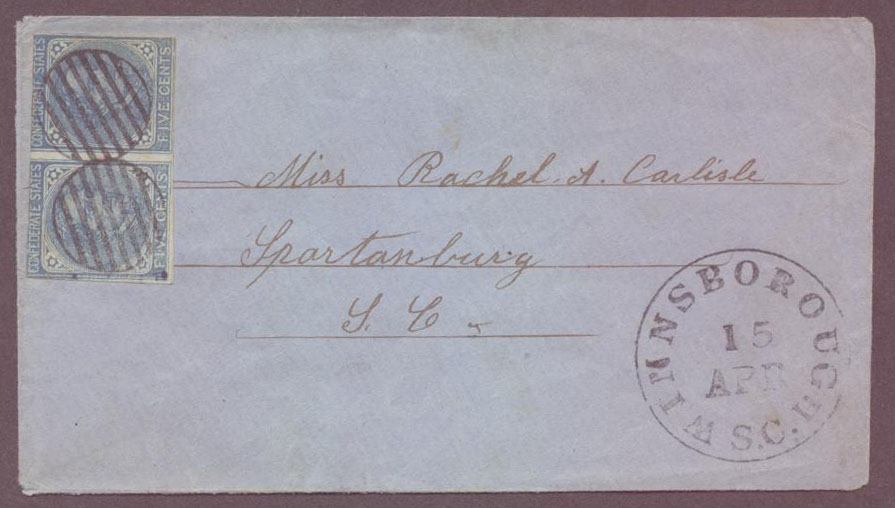 CONFEDERATE STATES
FIVE CENTS
CONFEDERATE STATES
FIVE CENTS
Miss Rachel. A. Carlisle
Spartanburg
S. C.
WINNSBOROUGH S.C.
15
APR